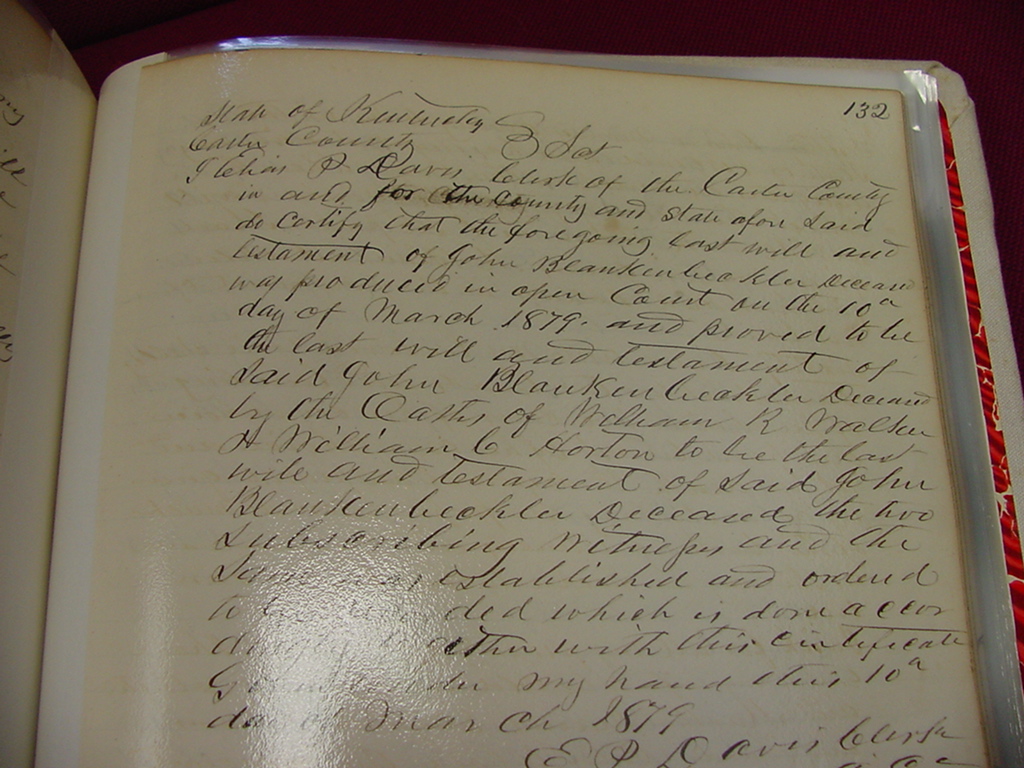 132
State of Kentucky
Carter County } Sct
I Elias P Davis Clerk of the Carter County
in and for the County and State afore Said
do certify that the foregoing last will and
testament of John Blankenbeckler Deceased
was produced in open Court on the 10a
day of March 1879. and proved to be
the last will and testament of
Said John Blankenbeckler Deceased
by the Oaths of William R Walker
& William C Horton to be the last
will and testament of Said John
Blankenbeckler Deceased the two
Subscribing Witnesses and the
Same was established and ordered
to be ded which is done accor
with this certificate
Given under my hand this 10a
day of March 1879
E P Davis Clerk